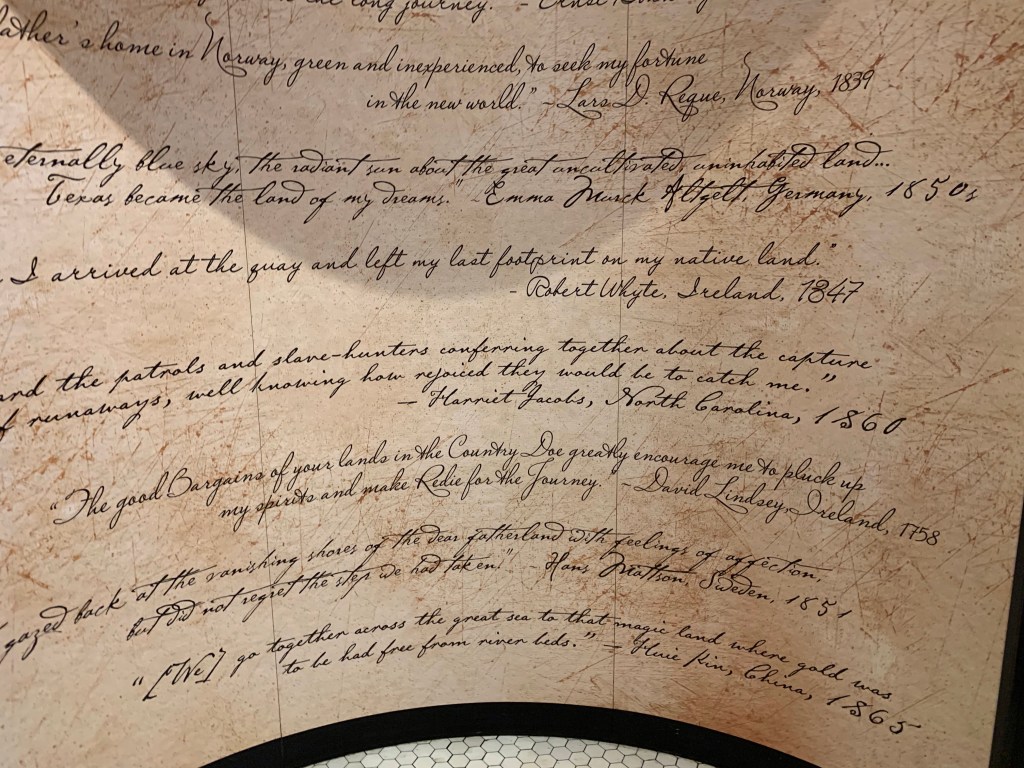 the long journey." - Ernst
father's home in Norway, green and inexperienced, to seek my fortune
in the new world." - Lars D. Reque, Norway, 1839
eternally blue sky, the radiant sun about the great uncultivated, uninhabited land...
Texas became the land of my dreams." - Emma Murck Altgelt, Germany, 1850s
I arrived at the quay and left my last footprint on my native land."
- Robert Whyte, Ireland, 1847
the patrols and slave-hunters conferring together about the capture
of runaways, well knowing how rejoiced they would be to catch me."
— Harriet Jacobs, North Carolina, 1860
"The good Bargains of your lands in the Country Doe greatly encourage me to pluck up
my spirits and make Redie for the Journey." - David Lindsey, Ireland, 1758
gazed back at the vanishing shores of the dear fatherland with feelings of affection,
but did not regret the step we had taken." - Hans Mattson, Sweden, 1851
"[We] go together across the great sea to that magic land where gold was
to be had free from river beds." — Huie Kin, China, 1865